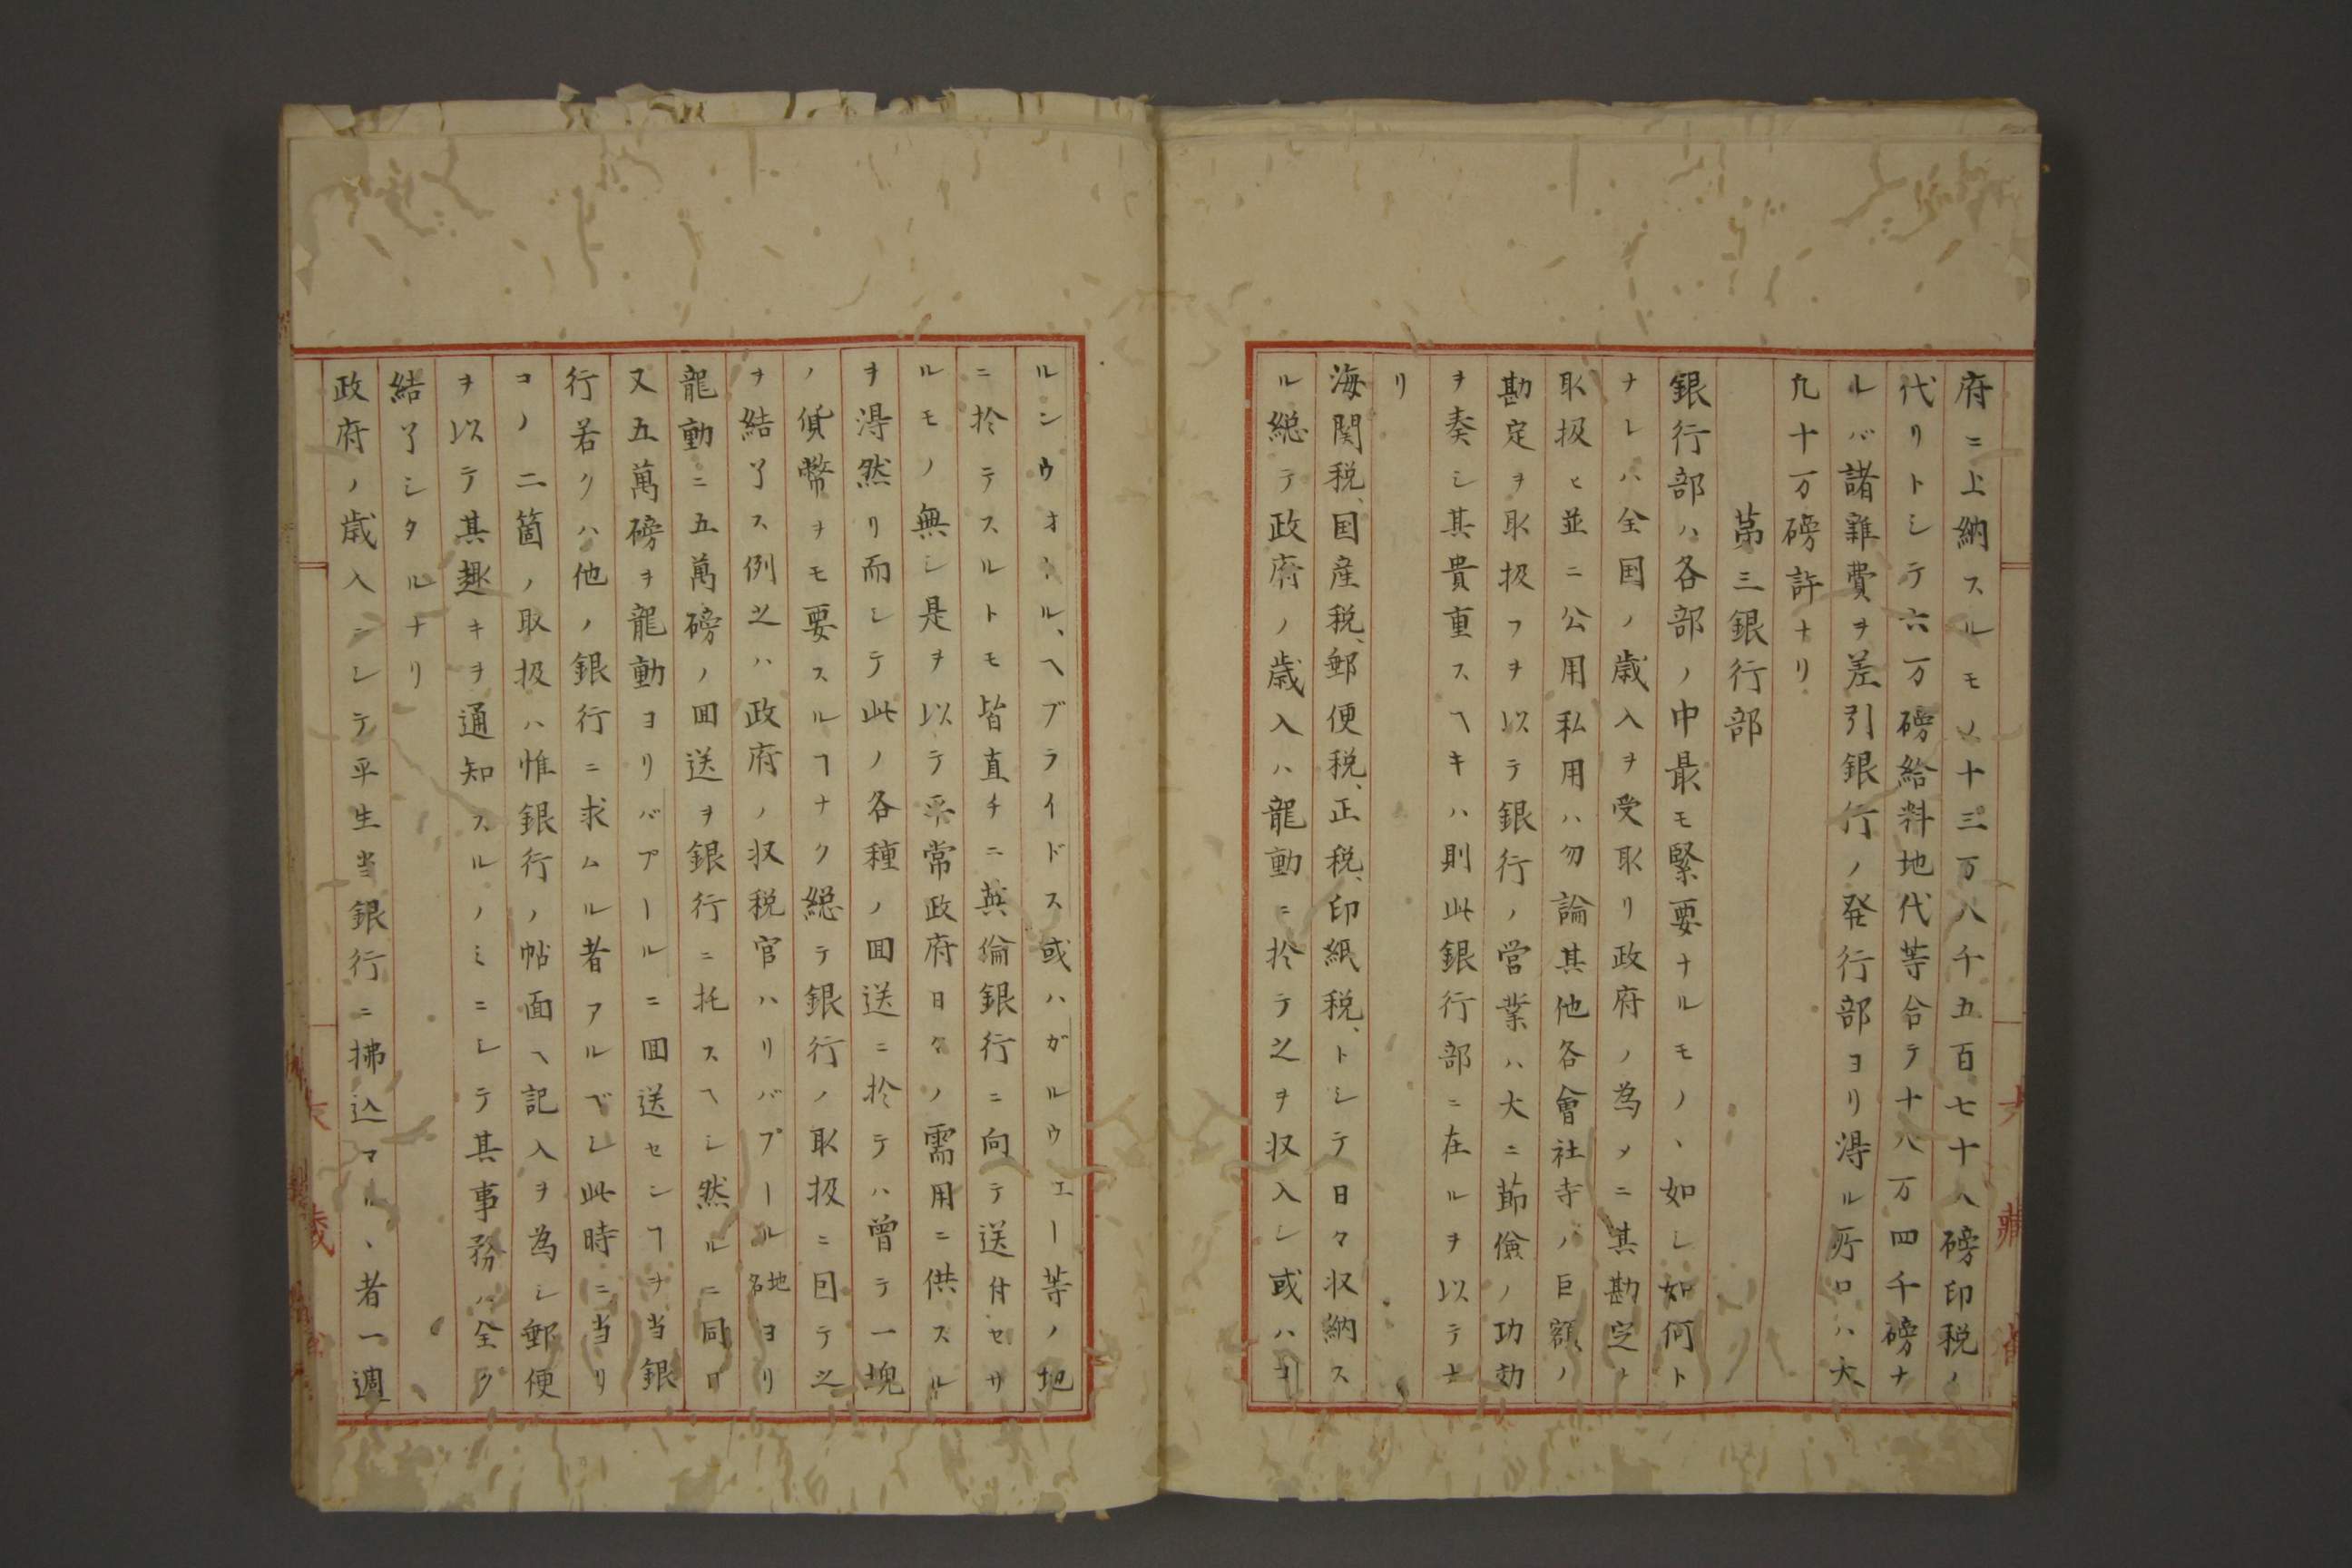 府ニ上納スルモノ十三万八千五百七十八磅印税ノ
代リトシテ六万磅給料地代等合テ十八万四千磅ナ
ルバ諸雜費ヲ差引銀行ノ発行部ヨリ得ル所口ハ大
九十万磅許ナリ
第三銀行部
銀行部ハ各部ノ中最モ緊要ナルモノヽ如シ如何ト
ナレハ全国ノ歳入ヲ受取リ政府ノ為メニ其勘定ノ
取扱ヒ並ニ公用私用ハ勿論其他各會社寺ノ巨額ノ
勘定ヲ取扱フヲ以テ銀行ノ営業ハ大ニ節儉ノ功効
ヲ奏シ其貴重スヘキハ則此銀行部ニ在ルヲ以テナ
リ
海関税、国産税、郵便税、正税、印紙税、トシテ日々収納ス
ル総テ政府ノ歳入ハ龍動ニ於テ之ヲ収入シ或ハヲ
ルンウオール、ヘブライドス或ハガルウエー等ノ地
ニ於テスルトモ皆直チニ英倫銀行ニ向テ送付セサ
ルモノ無シ是ヲ以テ平常政府日々ノ需用ニ供スル
ヲ得然リ而シテ此ノ各種ノ回送ニ於テハ曽テ一塊
ノ貨幣ヲモ要スルヿナク総テ銀行ノ取扱ニ因テ之
ヲ結了ス例之ハ政府ノ収税官ハリバプール地名ヨリ
龍動ニ五萬磅ノ回送ヲ銀行ニ托スヘシ然ルニ同日
又五萬磅ヲ龍動ヨリバプールニ回送センヿヲ当銀
行若クハ他ノ銀行ニ求ムル者アルベシ此時ニ当リ
コノ二箇ノ取扱ハ惟銀行ノ帖面ヘ記入ヲ為シ郵便
ヲ以テ其趣キヲ通知スルノミニシテ其事務ハ全ク
結了シタルナリ
政府ノ歳入ニシテ平生当銀行ニ拂込マルヽ者一週